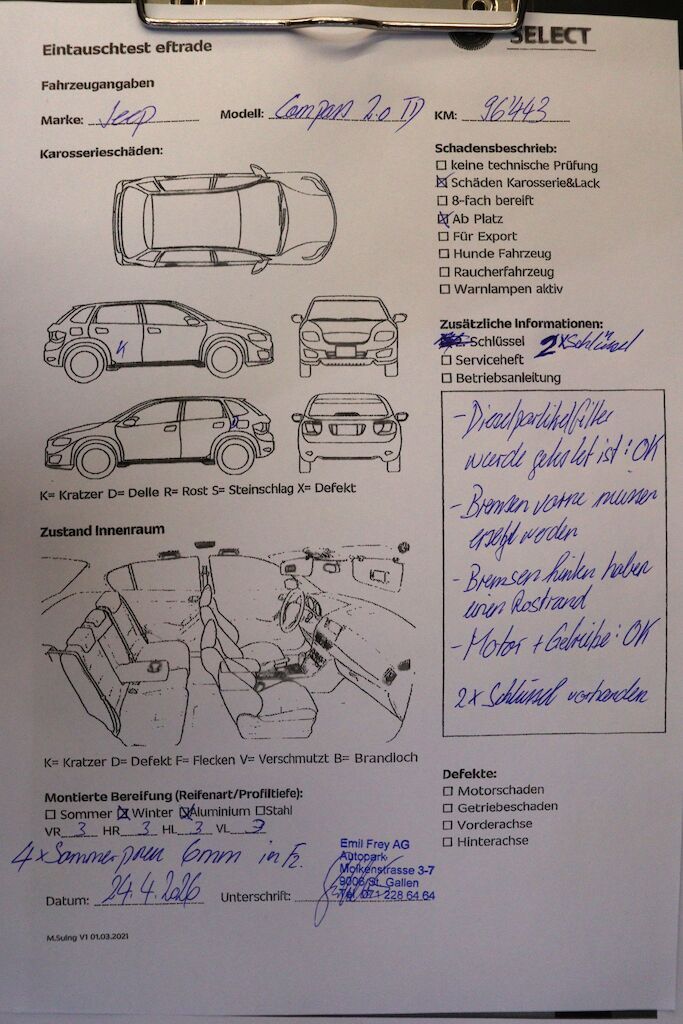 SELECT
Eintauschtest eftrade
Fahrzeugangaben
Marke: Jeep Modell: Compass 2.0 TD KM: 96'443
Karosserieschäden:
K
K= Kratzer D= Delle R= Rost S= Steinschlag X= Defekt
Zustand Innenraum
K= Kratzer D= Defekt F= Flecken V= Verschmutzt B= Brandloch
Montierte Bereifung (Reifenart/Profiltiefe):
☐ Sommer ☒ Winter ☒ Aluminium ☐ Stahl
VR 3 HR 3 HL 3 VL 3
4x Sommerpneu 6mm in Fz.
Datum: 24.4.2026 Unterschrift:
Emil Frey AG
Autopark
Molkenstrasse 3-7
9006 St. Gallen
Tel. 071 228 64 64
M.Suing V1 01.03.2021
Schadensbeschrieb:
☐ keine technische Prüfung
☒ Schäden Karosserie&Lack
☐ 8-fach bereift
☒ Ab Platz
☐ Für Export
☐ Hunde Fahrzeug
☐ Raucherfahrzeug
☐ Warnlampen aktiv
Zusätzliche Informationen:
Schlüssel 2xSchlüssel
☐ Serviceheft
☐ Betriebsanleitung
- Dieselpartikelfilter
wurde getestet ist: OK
- Bremsen vorne müssen
ersetzt werden
- Bremsen hinten haben
einen Rostrand
- Motor + Getriebe: OK
2x Schlüssel vorhanden
Defekte:
☐ Motorschaden
☐ Getriebeschaden
☐ Vorderachse
☐ Hinterachse